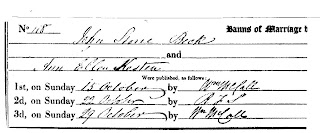 No 118 Banns of Marriage b
John Stone Beck
and
Ann Ellen Hosten
Were published, as follows:
1st, on Sunday 15 October by Wm McCall
2d, on Sunday 22 October by
3d, on Sunday 29 October by Wm McCall